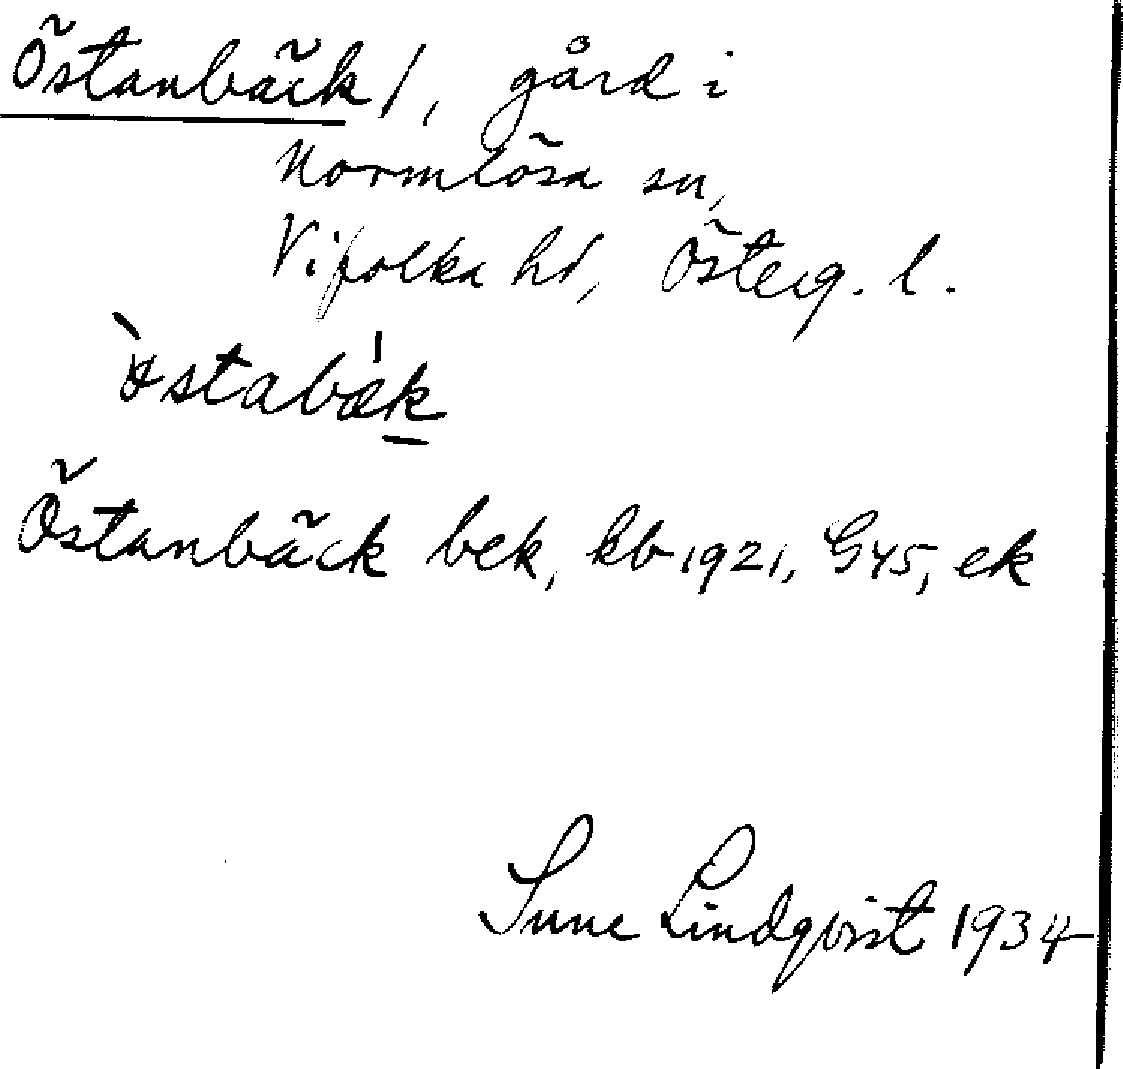 Östanbäck /, gård i
Normlösa sn,
Vifolka hd, Österg. l.
östabäk
Östanbäck bek, kb 1921, G45, ek
Sune Lindqvist 1934